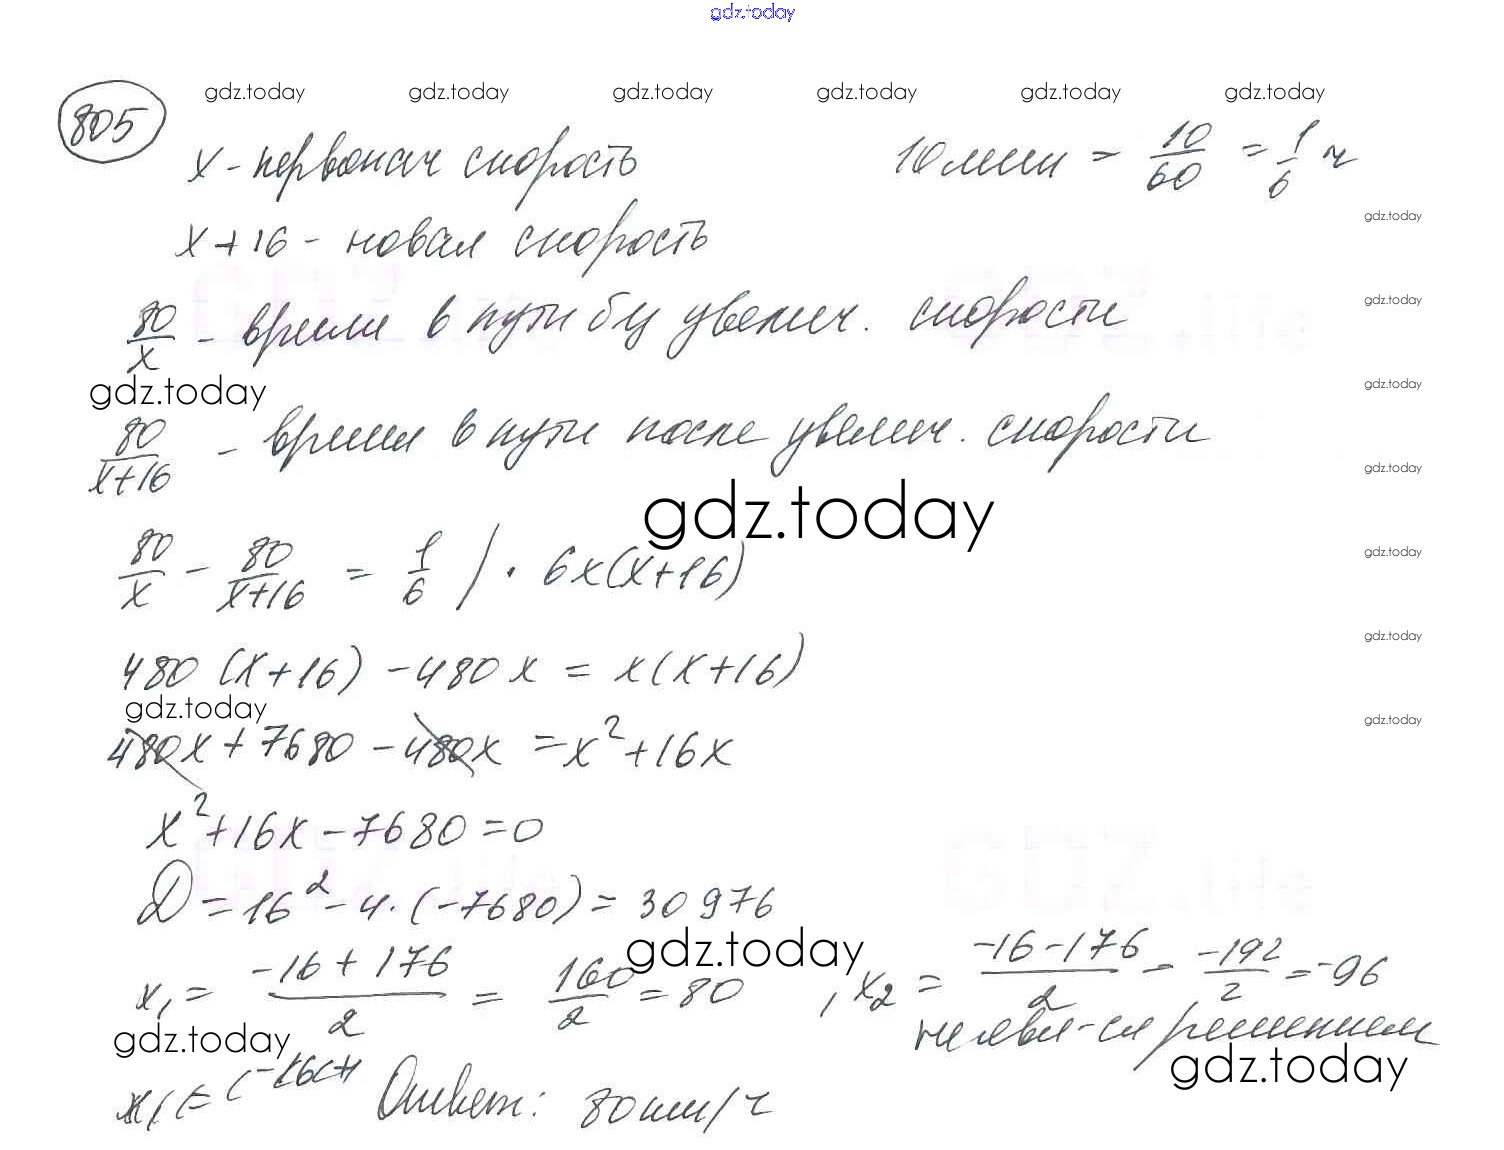 gdz.today
805
gdz.today gdz.today gdz.today gdz.today gdz.today gdz.today
x - первонач скорость 10 мин = 10/60 = 1/6 ч
gdz.today
x + 16 - новая скорость
80/x - время в пути без увелич. скорости
gdz.today
gdz.today gdz.today
80/(x+16) - время в пути после увелич. скорости
gdz.today
gdz.today
80/x - 80/(x+16) = 1/6 | · 6x(x+16)
gdz.today
480(x+16) - 480x = x(x+16)
gdz.today
gdz.today gdz.today
480x + 7680 - 480x = x² + 16x
x² + 16x - 7680 = 0
D = 16² - 4·(-7680) = 30976
gdz.today
x₁ = (-16+176)/2 = 160/2 = 80 , x₂ = (-16-176)/2 = -192/2 = -96
не явл-ся решением
gdz.today gdz.today
Ответ: 80 км/ч